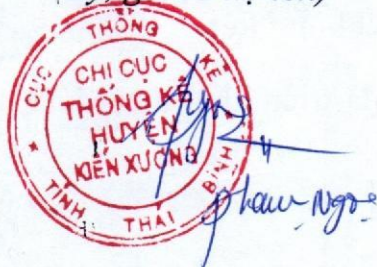 CỤC THỐNG KÊ
TỈNH THÁI BÌNH
CHI CỤC
THỐNG KÊ
HUYỆN
KIẾN XƯƠNG
Phạm Ngọc